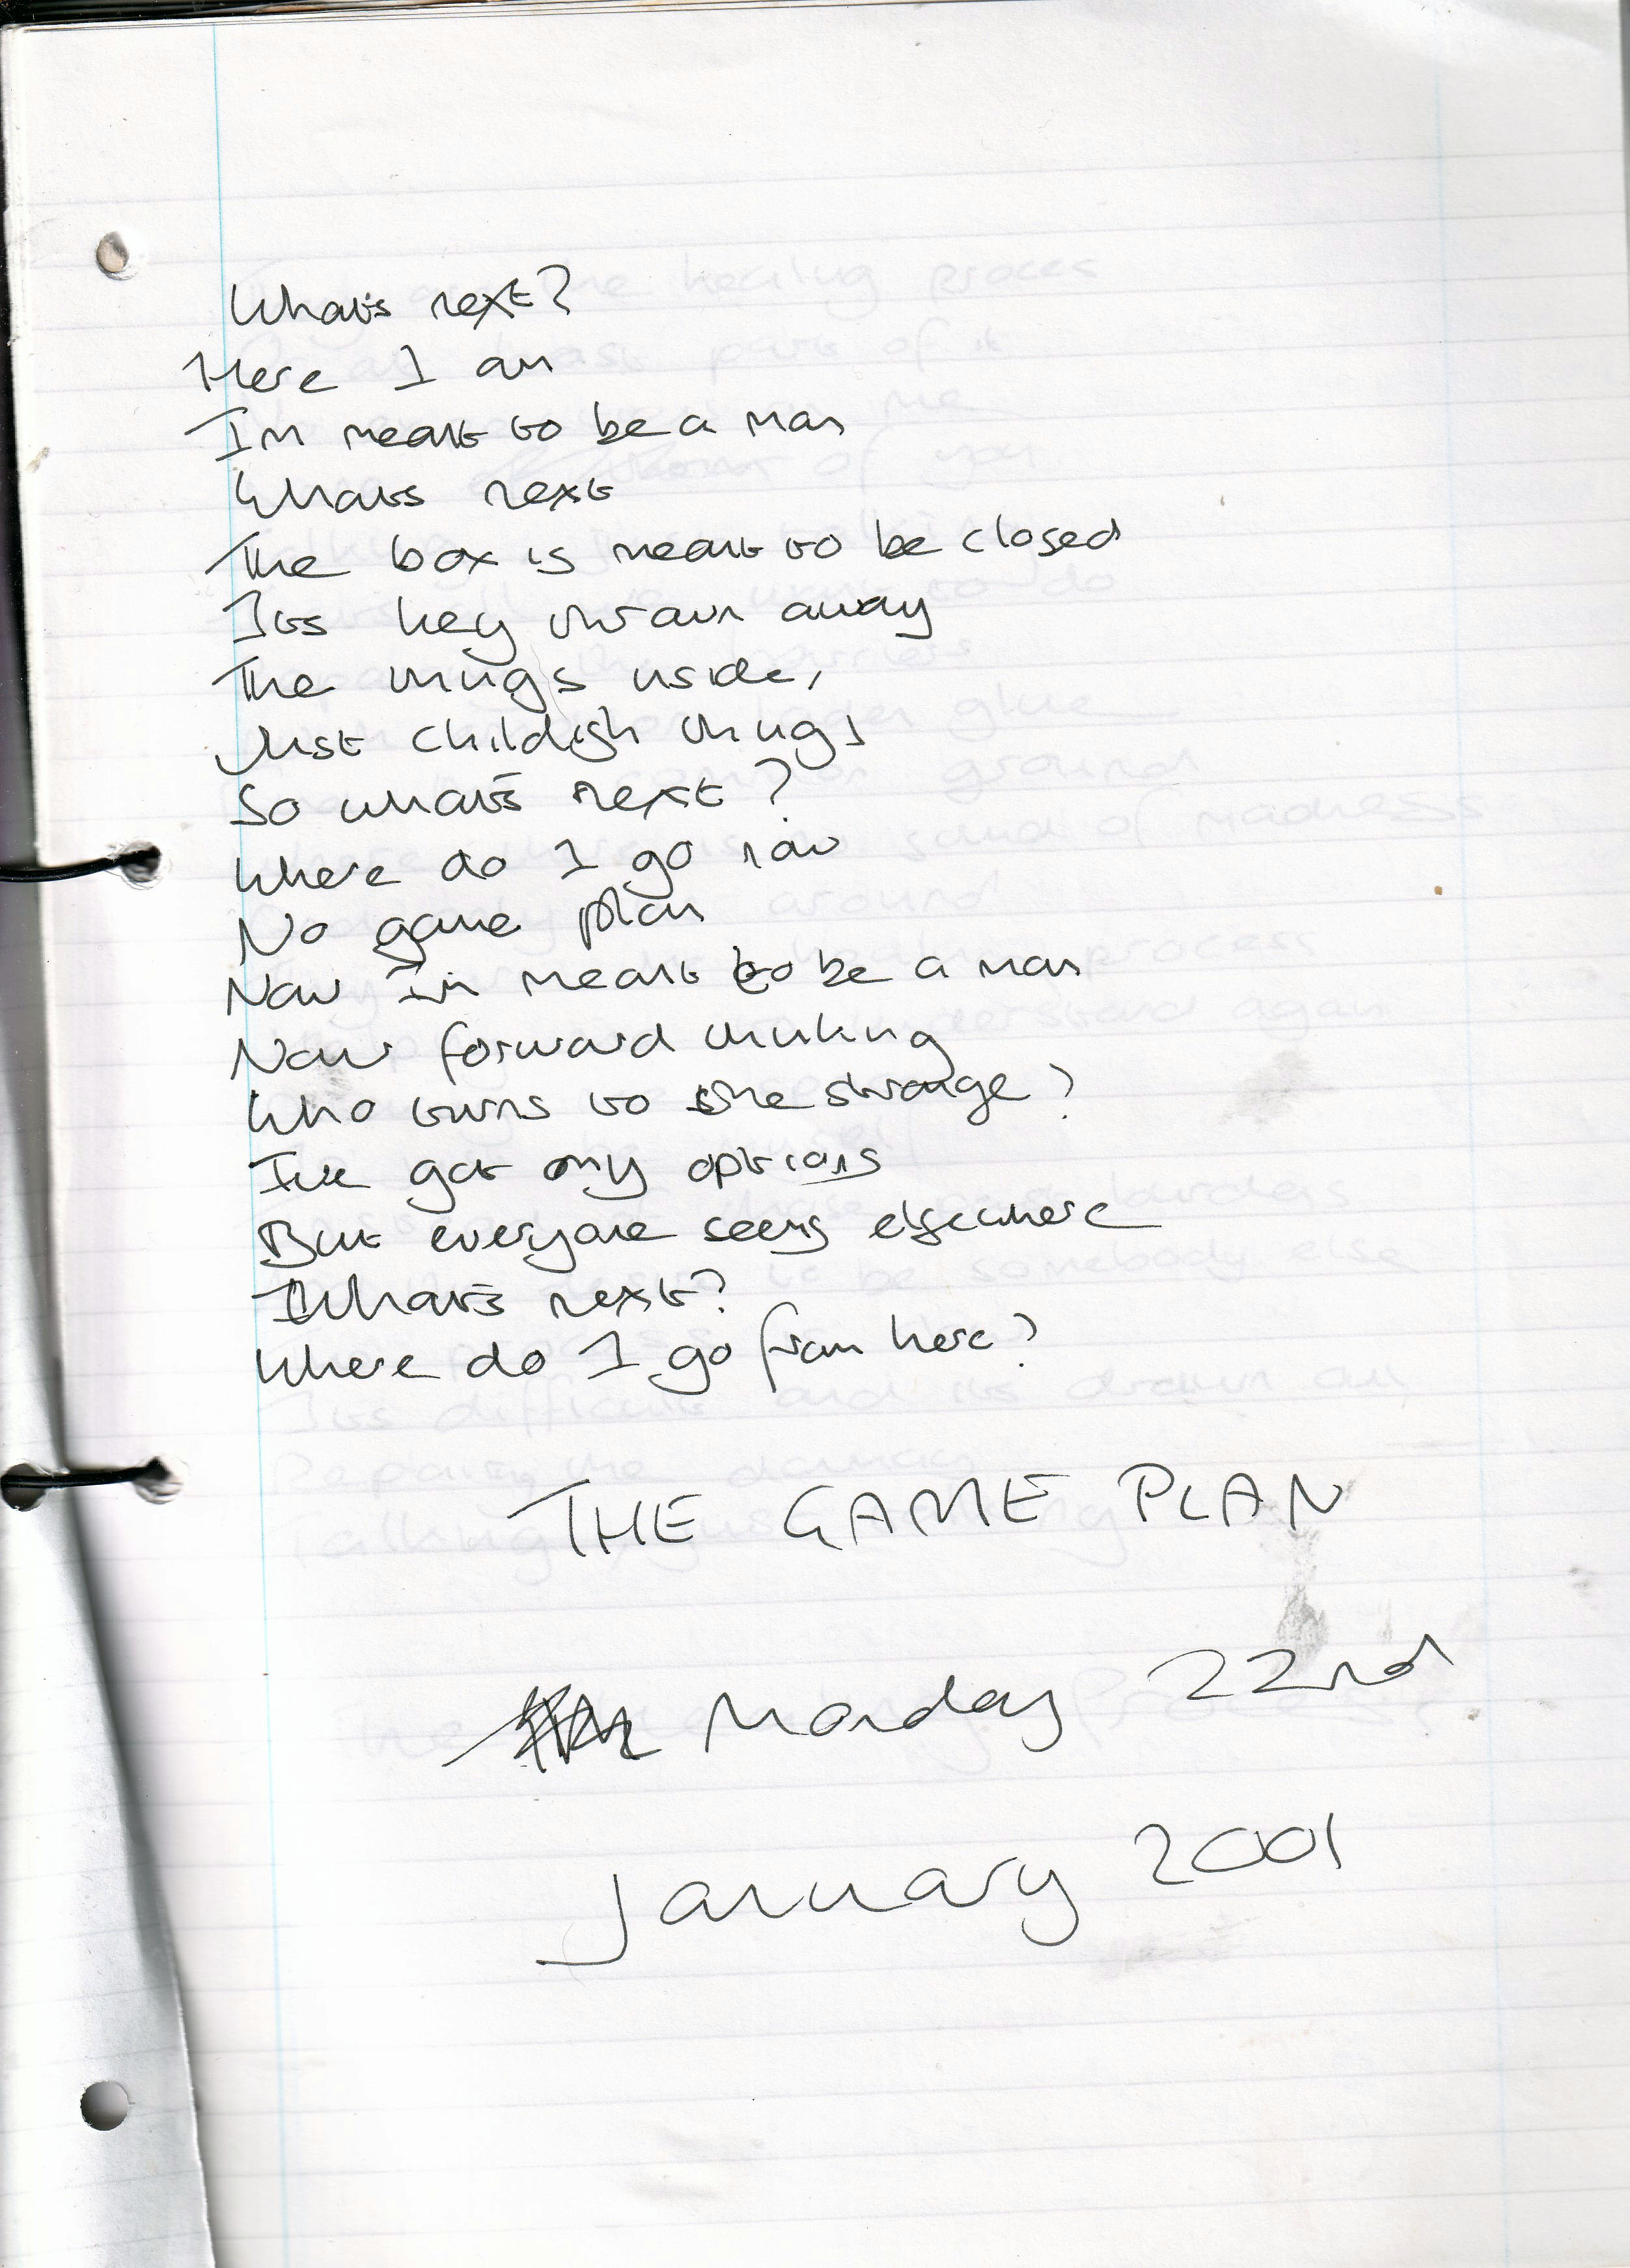 What's next?
Here I am
I'm meant to be a man
Whats next
The box is meant to be closed
Its key thrown away
The things inside,
Just childish things
So what's next?
Where do I go now
No game plan
Now I'm meant to be a man
Now forward thinking
Who turns to the strange?
I've got my options
But everyone seems elsewhere
What's next?
Where do I go from here?
THE GAME PLAN
Monday 22nd
January 2001